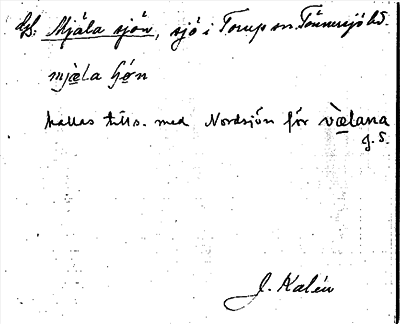 Mjäla sjön, sjö i Torup sn. Tönnersjö hd.
mjæla ʃøn
kallas tills. med Nordsjön för væ̀lana
J. Kalén